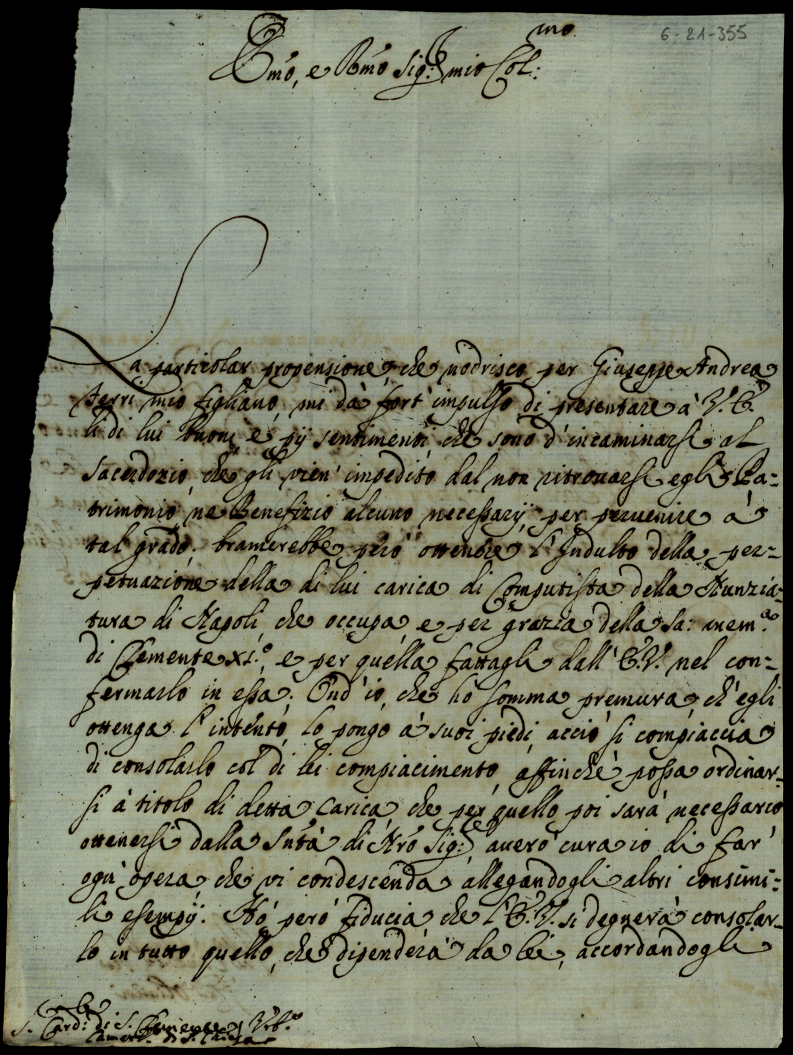 6-21-355
Emo, e Rmo Sig:re mio Col:mo
La particolar propensione che nodrisco per Giuseppe Andrea
Ferri mio figliano, mi dà fort' impulso di presentare à V.E.
li di lui buoni e pij sentimenti che sono d'incaminarsi al
Sacerdozio che gli vien' impedito dal non ritrovarsi egli Pa=
trimonio ne Benefizio alcuno necessarij per pervenire à
tal grado; bramerebbe però ottenere l'Indulto della per=
petuazione della di lui carica di Computista della Nunzia=
tura di Napoli, che occupa e per grazia della sa: mem:a
di Clemente XI.o, e per quella fattagli dall' E.V. nel con=
fermarlo in essa. Ond' io, che hò somma premura ch' egli
ottenga l'intento, lo pongo à suoi piedi, acciò si compiaccia
di consolarlo col di lei compiacimento, affinche possa ordinar=
si à titolo di detta Carica, che per quello poi sarà necessario
ottenersi dalla Sntà di Nro Sig:re averò cura io di far'
ogn' opera che vi condescenda, allegandogli altri consimi=
li esempij. Hò però fiducia che l'E.V. si degnerà consolar=
lo in tutto quello, che dipenderà da lei, accordandogli
S. Card: di S. Clemente
Camerl. di S. Chiesa